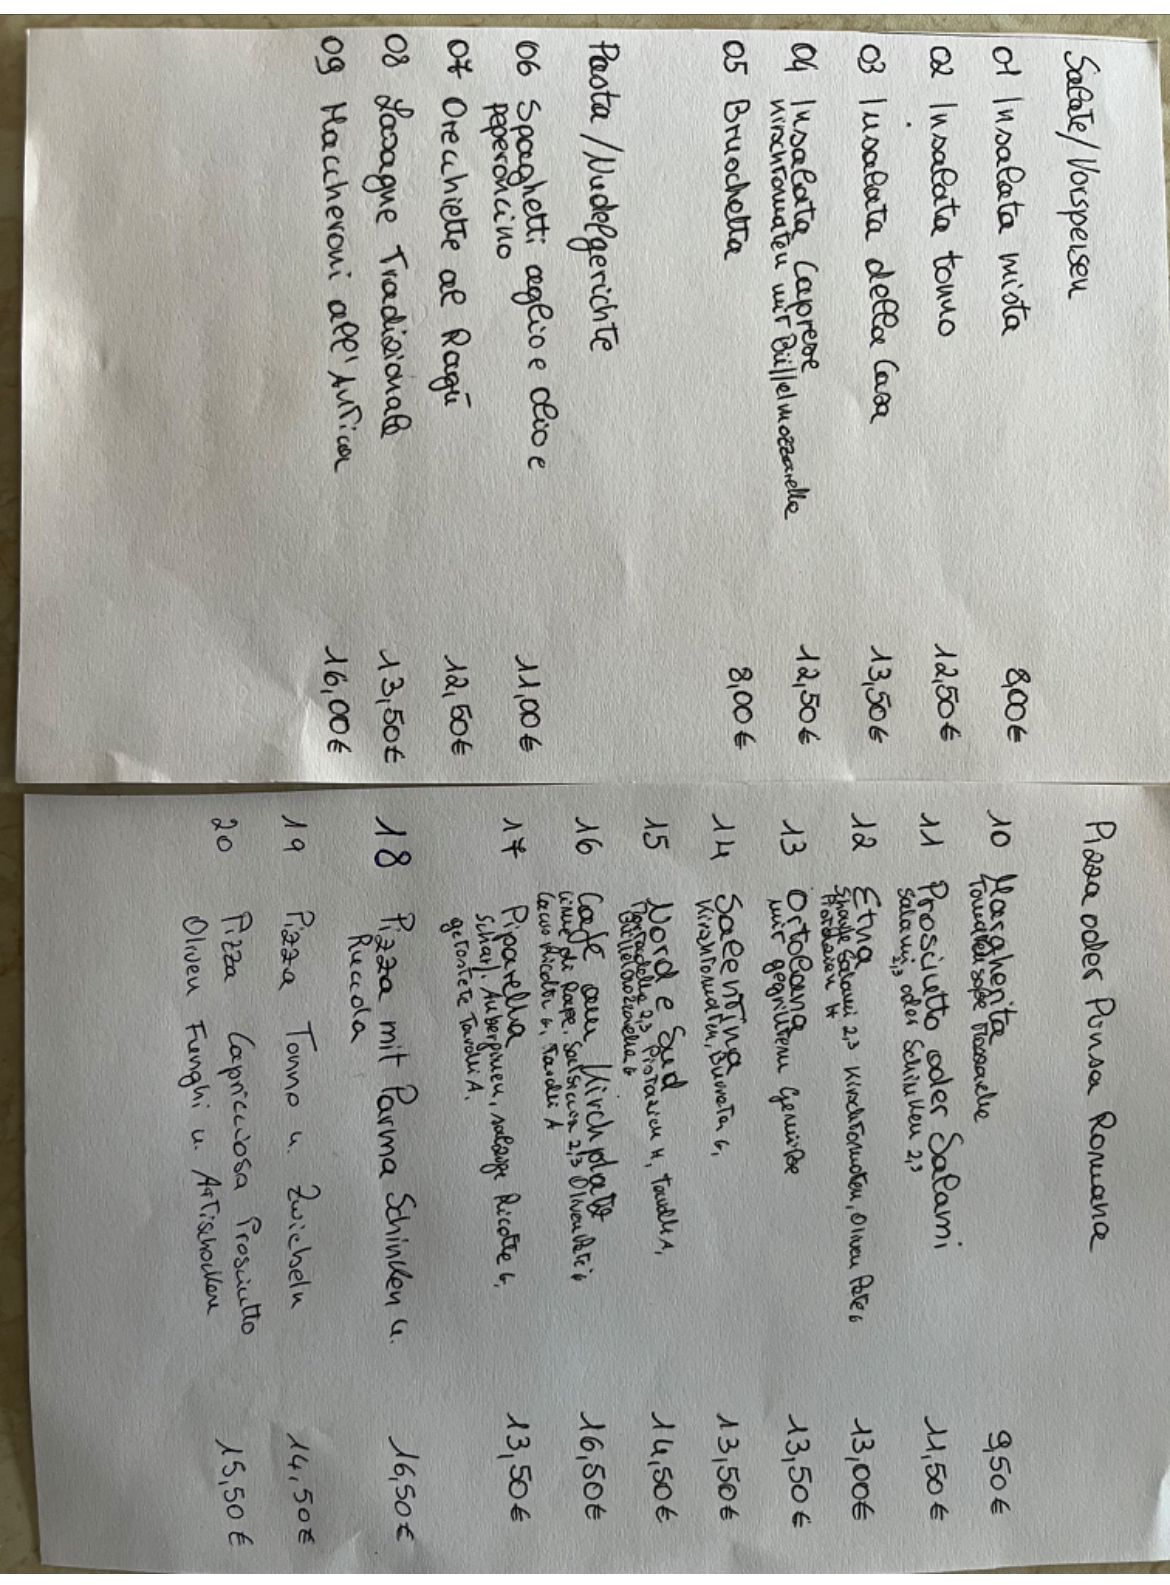 Salate/Vorspeisen
01 Insalata mista 8,00€
02 Insalata tonno 12,50€
03 Insalata della Casa 13,50€
04 Insalata Caprese 12,50€
Kirschtomaten mit Büffelmozzarella
05 Bruschetta 8,00€
Pasta/Nudelgerichte
06 Spaghetti aglio e olio e 11,00€
peperoncino
07 Orecchiette al Ragú 12,50€
08 Lasagne Tradizionale 13,50€
09 Maccheroni all'Antica 16,00€
Pizza oder Pinsa Romana
10 Margherita 9,50€
Tomatensoße Mozzarella
11 Prosciutto oder Salami 11,50€
Salami 2,3 oder Schinken 2,3
12 Etna 13,00€
Scharfe Salami 2,3 Kirschtomaten, Oliven Paté 6
Pistazien H
13 Ortolana 13,50€
mit gegrilltem Gemüse
14 Salentina 13,50€
Kirschtomaten, Burrata G,
15 Nord e Sud 14,50€
Mortadella 2,3 Pistazien H, Taralli A,
Büffelmozzarella G
16 Café am Kirchplatz 16,50€
Cime di Rape, Salsiccia 2,3 Oliven Paté 6
Cacioricotta G, Taralli A
17 Piparella 13,50€
Scharf. Auberginen, salzige Ricotta G,
geröstete Taralli A.
18 Pizza mit Parma Schinken u. 16,50€
Ruccola
19 Pizza Tonno u. Zwiebeln 14,50€
20 Pizza Capricciosa Prosciutto 15,50€
Oliven Funghi u. Artischocken